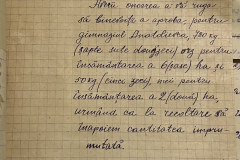 onoarea a vă ruga
să binevoiți a aproba, pentru
gimnaziul 720 kg
(șapte sute douăzeci) orz pentru
însămânțarea a 6 (șase) ha și
50 kg (cinci zeci) mei pentru
însămânțarea a 2 (două) ha,
urmând ca la recoltare să
înapoiem cantitatea împru-
mutată.